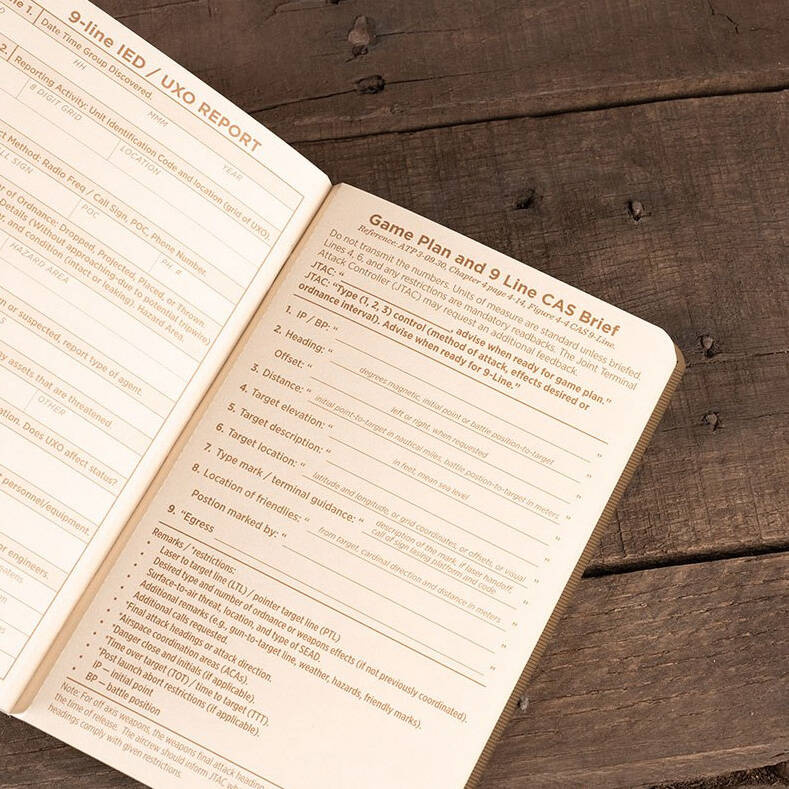 9-line IED / UXO REPORT
ne 1. Date Time Group Discovered.
HH
MMM
YEAR
2. Reporting Activity: Unit Identification Code and location (grid of UXO).
8 DIGIT GRID
LOCATION
ct Method: Radio Freq / Call Sign, POC, Phone Number.
LL SIGN
POC
PH #
of Ordnance: Dropped, Projected, Placed, or Thrown.
Details (Without approaching-due to potential tripwire)
and condition (intact or leaking). Hazard Area.
HAZARD AREA
n or suspected, report type of agent.
ny assets that are threatened
OTHER
ation. Does UXO affect status?
t personnel/equipment.
or engineers.
Game Plan and 9 Line CAS Brief
Reference: ATP 3-09.30, Chapter 4 page 4-14, Figure 4-4 CAS 9-Line.
Do not transmit the numbers. Units of measure are standard unless briefed.
Lines 4, 6, and any restrictions are mandatory readbacks. The Joint Terminal
Attack Controller (JTAC) may request an additional feedback.
JTAC: “ , advise when ready for game plan.”
JTAC: “Type (1, 2, 3) control (method of attack, effects desired or
ordnance interval). Advise when ready for 9-Line.”
1. IP / BP: “ ”
2. Heading: “ ”
degrees magnetic, initial point or battle position-to-target
Offset: “ ”
left or right, when requested
3. Distance: “ ”
initial point-to-target in nautical miles, battle postion-to-target in meters
4. Target elevation: “ ”
in feet, mean sea level
5. Target description: “ ”
6. Target location: “ ”
latitude and longitude, or grid coordinates, or offsets, or visual
7. Type mark / terminal guidance: “ ”
description of the mark, if laser handoff,
call of sign lasing platform and code
8. Location of friendlies: “ ”
from target, cardinal direction and distance in meters
Postion marked by: “ ”
9. “Egress ”
Remarks / *restrictions:
• Laser to target line (LTL) / pointer target line (PTL)
• Desired type and number of ordnance or weapons effects (if not previously coordinated).
• Surface-to-air threat, location, and type of SEAD.
• Additional remarks (e.g., gun-to-target line, weather, hazards, friendly marks).
• Additional calls requested
• *Final attack headings or attack direction.
• *Airspace coordination areas (ACAs).
• *Danger close and initials (if applicable).
• *Time over target (TOT) / time to target (TTT).
• *Post launch abort restrictions (if applicable).
IP — initial point
BP — battle position
Note: For off axis weapons, the weapons final attack heading
the time of release. The aircrew should inform JTAC
headings comply with given restrictions.